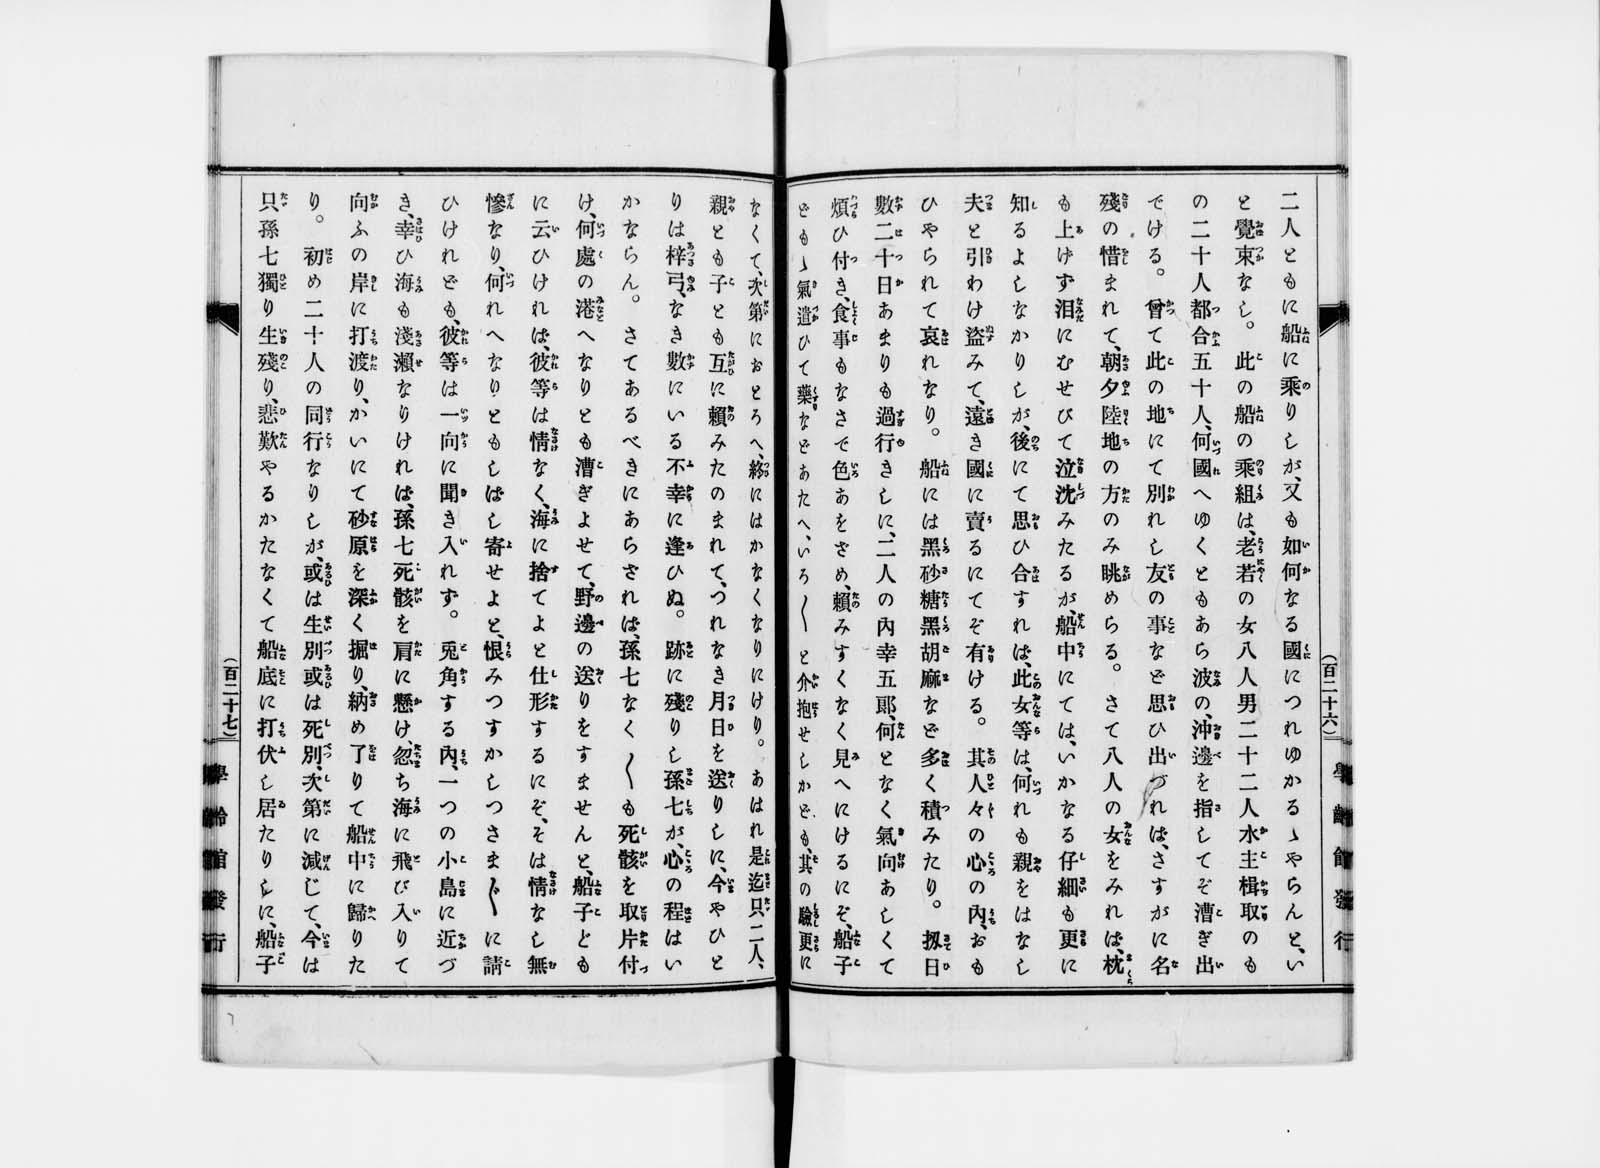 二人ともに船に乘りしが、又も如何なる國につれゆかるゝやらんと、い
と覺束なし。此の船の乘組は、老若の女八人男二十二人水主楫取のも
の二十人都合五十人、何國へゆくともあら波の、沖邊を指してぞ漕ぎ出
でける。曾て此の地にて別れし友の事など思ひ出づれば、さすがに名
殘の惜まれて、朝夕陸地の方のみ眺めらる。さて八人の女をみれば、枕
も上げず泪にむせびて泣沈みたるが、船中にては、いかなる仔細も更に
知るよしなかりしが、後にて思ひ合すれば、此女等は、何れも親をはなし
夫と引わけ盜みて、遠き國に賣るにてぞ有ける。其人々の心の內、おも
ひやられて哀れなり。船には黑砂糖黑胡麻など多く積みたり。扨日
數二十日あまりも過行きしに、二人の內幸五郞、何となく氣向あしくて
煩ひ付き、食事もなさで色あをざめ、賴みすくなく見へにけるにぞ、船子
ども氣遣ひて藥などあたへ、いろ〱と介抱せしかども、其の驗更に
なくて、次第におとろへ、終にはかなくなりにけり。あはれ是迄只二人、
親とも子とも互に賴みたのまれて、つれなき月日を送りしに、今やひと
りは梓弓、なき數にいる不幸に逢ひぬ。跡に殘りし孫七が、心の程はい
かならん。さてあるべきにあらざれば、孫七なく〱も死骸を取片付
け、何處の港へなりとも漕ぎよせて、野邊の送りをすませんと、船子ども
に云ひければ、彼等は情なく、海に捨てよと仕形するにぞ、そは情なし無
慘なり、何れへなりともしばし寄せよと、恨みつすかしつさま〲に請
ひけれども、彼等は一向に聞き入れず。兎角する內、一つの小島に近づ
き、幸ひ海も淺瀨なりければ、孫七死骸を肩に懸け、忽ち海に飛び入りて
向ふの岸に打渡り、かいにて砂原を深く掘り、納め了りて船中に歸りた
り。初め二十人の同行なりしが、或は生別或は死別、次第に減じて、今は
只孫七獨り生殘り、悲歎やるかたなくて船底に打伏し居たりしに、船子
(百二十六)
學齡館發行
(百二十七)
學齡館發行